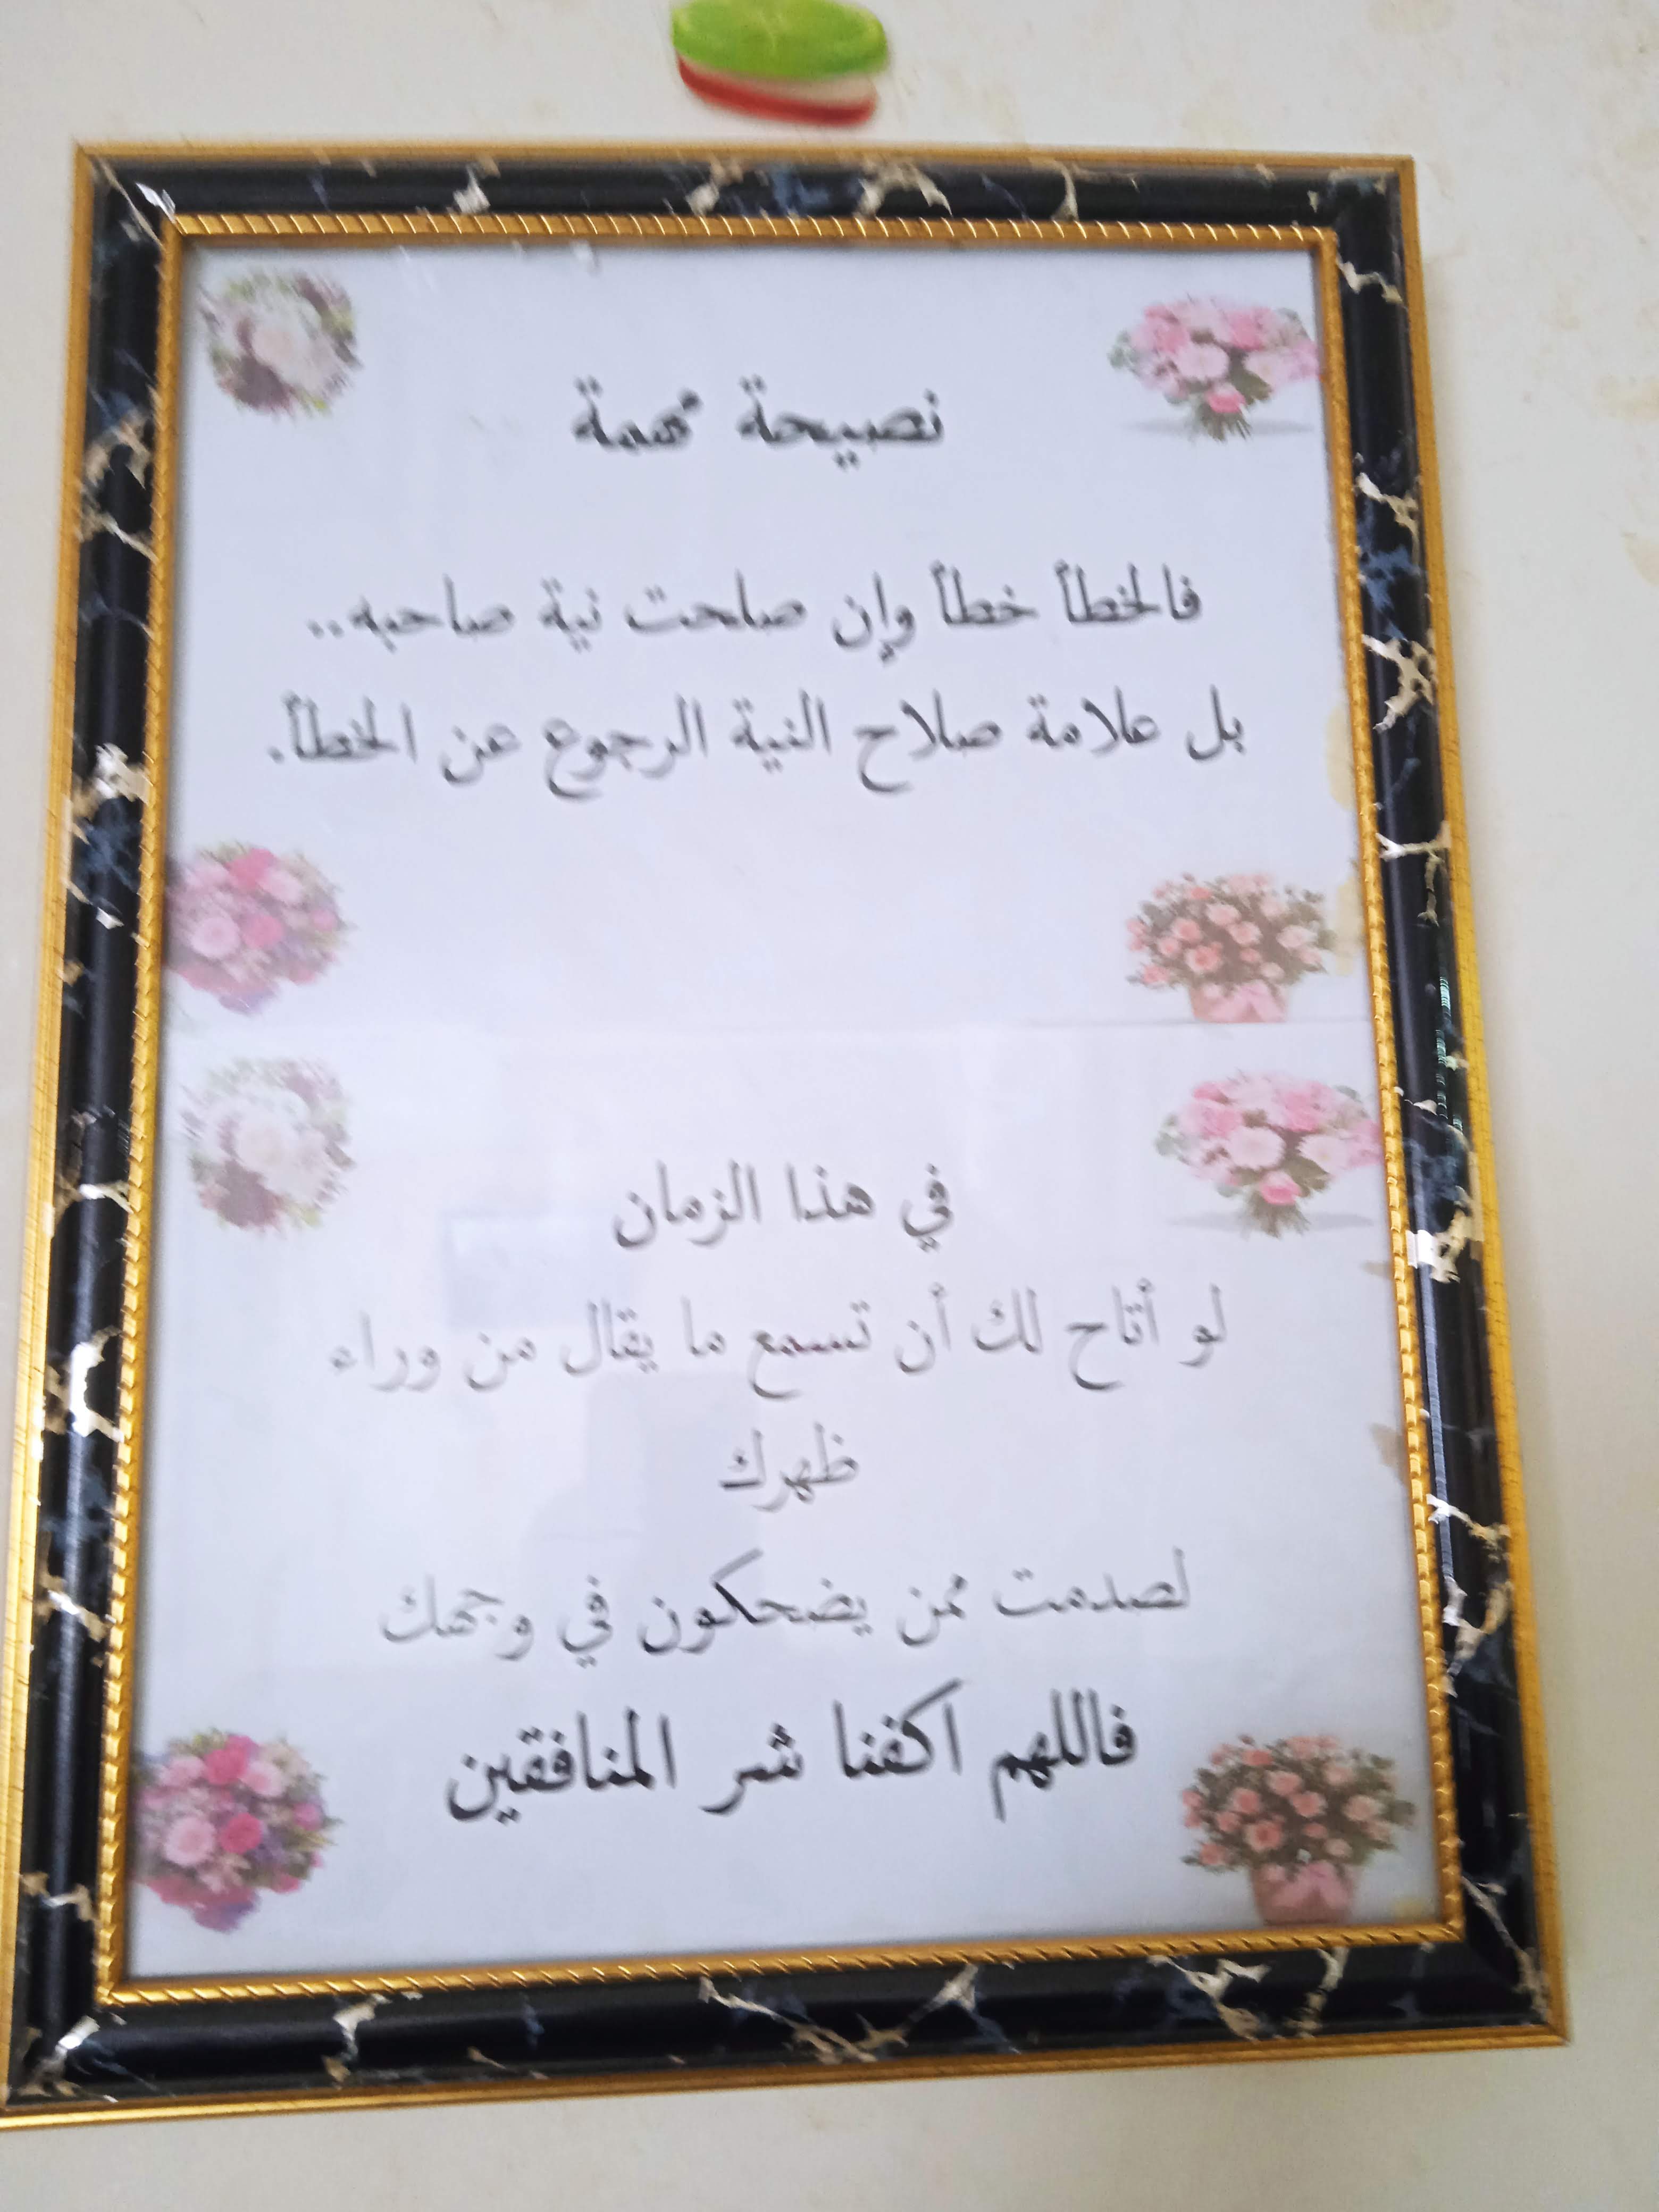 نصيحة مهمة
فالخطأ خطأ وإن صلحت نية صاحبه..
بل علامة صلاح النية الرجوع عن الخطأ.
في هذا الزمان
لو أتاح لك أن تسمع ما يقال من وراء
ظهرك
لصدمت ممن يضحكون في وجهك
فاللهم اكفنا شر المنافقين